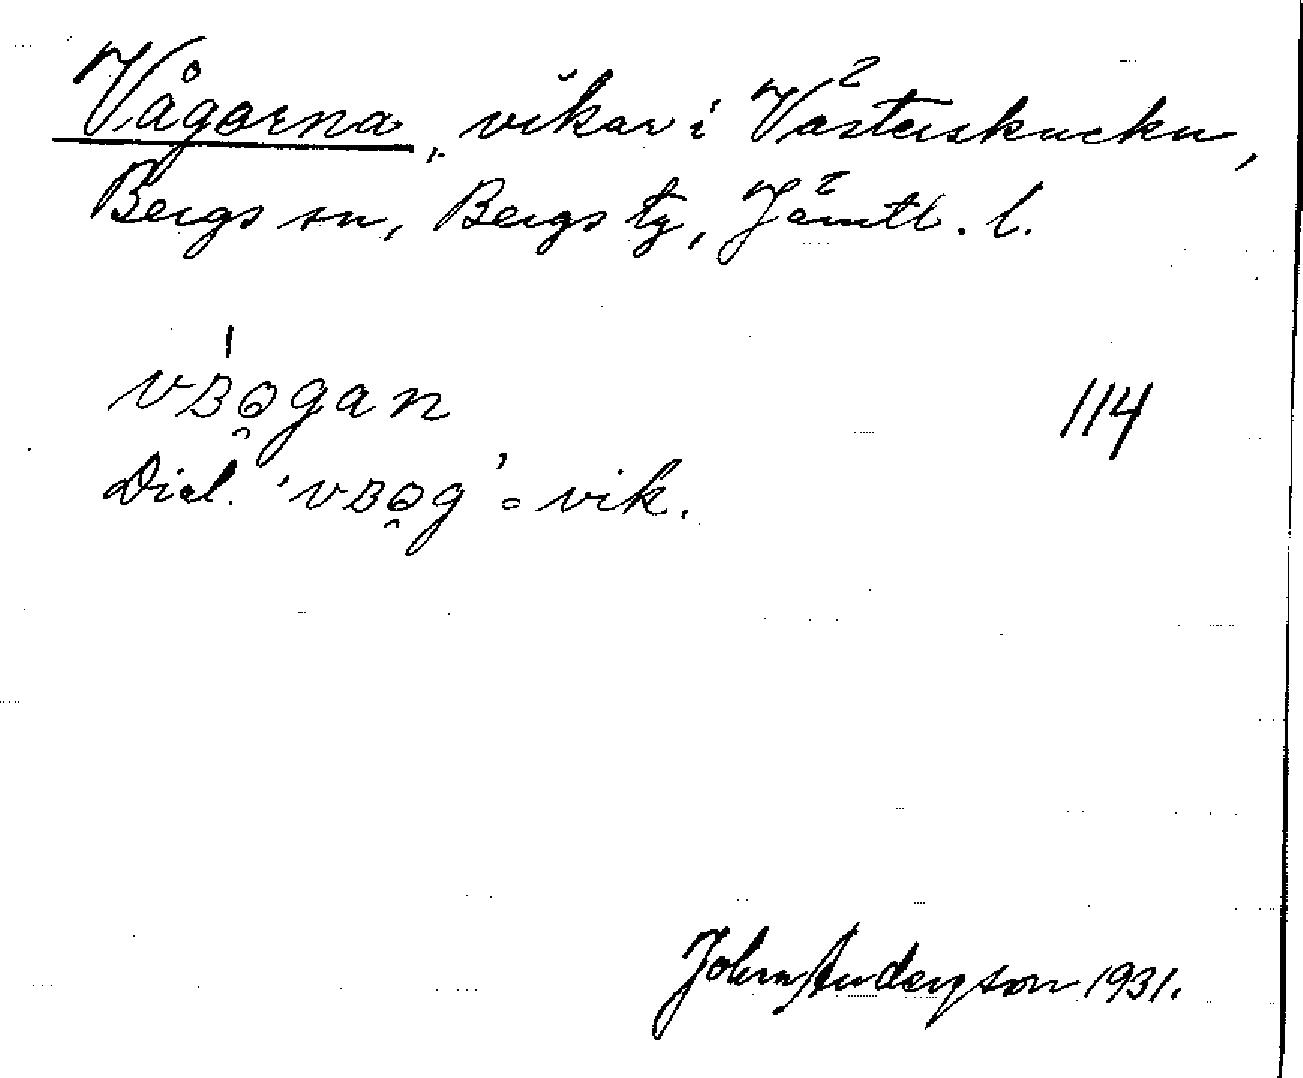 Vågorna, vikar i Västerskucku,
Bergs sn, Bergs tg, Jämtl. l.
vBo̯gan
114
Dial. 'vBo̯g' = vik.
John Andersson 1931.